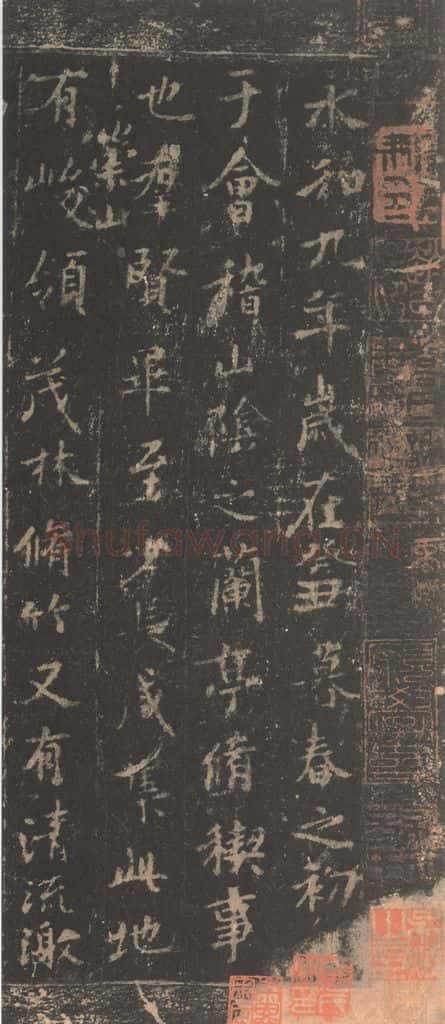 永和九年歲在癸丑暮春之初會
于會稽山陰之蘭亭脩稧事
也群賢畢至少長咸集此地
有崇山峻領茂林脩竹又有清流激
shufawang.cn